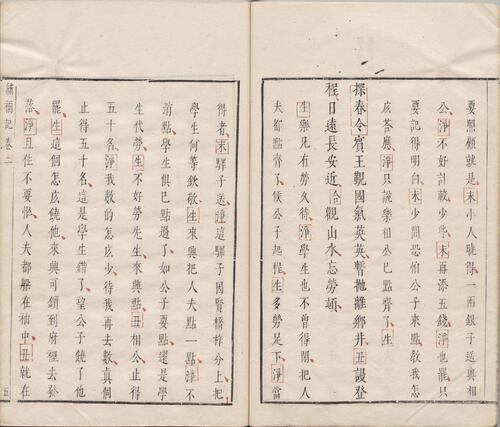 要照顧就是末小人曉得一兩銀子送與相
公淨不好討載少些末再添五錢淨也罷只
要記得明白末少間恐怕公子來點敎我怎
庅答應淨只說樂相公已點齊了生
探春令賓王觀國氣英英暫拋離鄉井丑謾登
程日遠長安近合觀山水忘勞頓
生樂兄有勞久待淨學生也不曾得閒把人
夫都點齊了候公子起程生多勞足下淨當
得者末驛子送淨這驛子因賢橋梓分上把
學生何等欽敬生來興把人夫點一點淨不
消點學生俱已點過了如公子要點還是學
生代勞生不好勞先生來興點丑相公止得
五十名淨我數的怎庅少待我再去數真個
止得五十名這是學生錯了望公子饒了他
罷生這個怎庅饒他來興可鎖到府裡去發
落淨且住不要慌人夫都躲在袖中丑就在
繡襦記 卷二 五